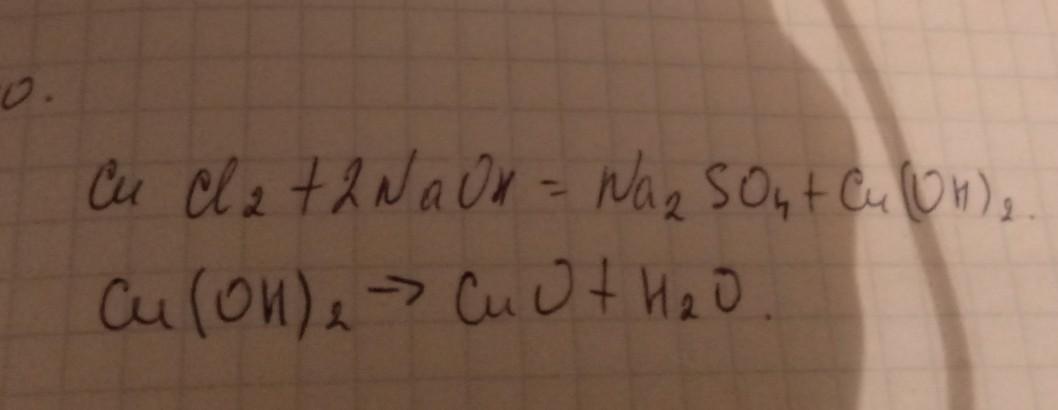 0.
Cu Cl₂ + 2NaOH = Na₂SO₄ + Cu(OH)₂.
Cu(OH)₂ → CuO + H₂O.